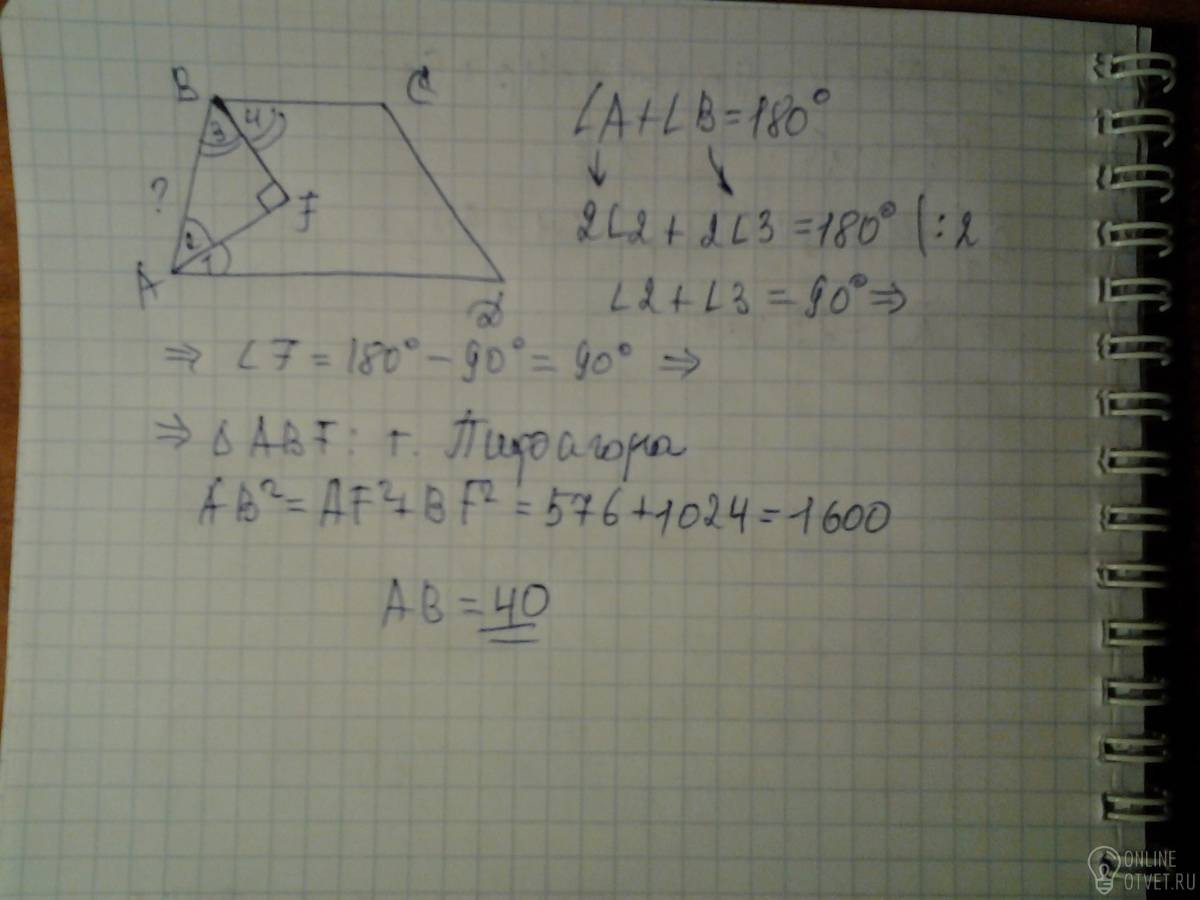 B C
3 4
?
F
2
A 1
D
∠A+∠B=180°
2∠2+2∠3=180° (:2
∠2+∠3=90°⇒
⇒ ∠F=180°-90°=90° ⇒
⇒ ΔABF: т. Пифагора
AB²=AF²+BF²=576+1024=1600
AB=40
ONLINE
OTVET.RU